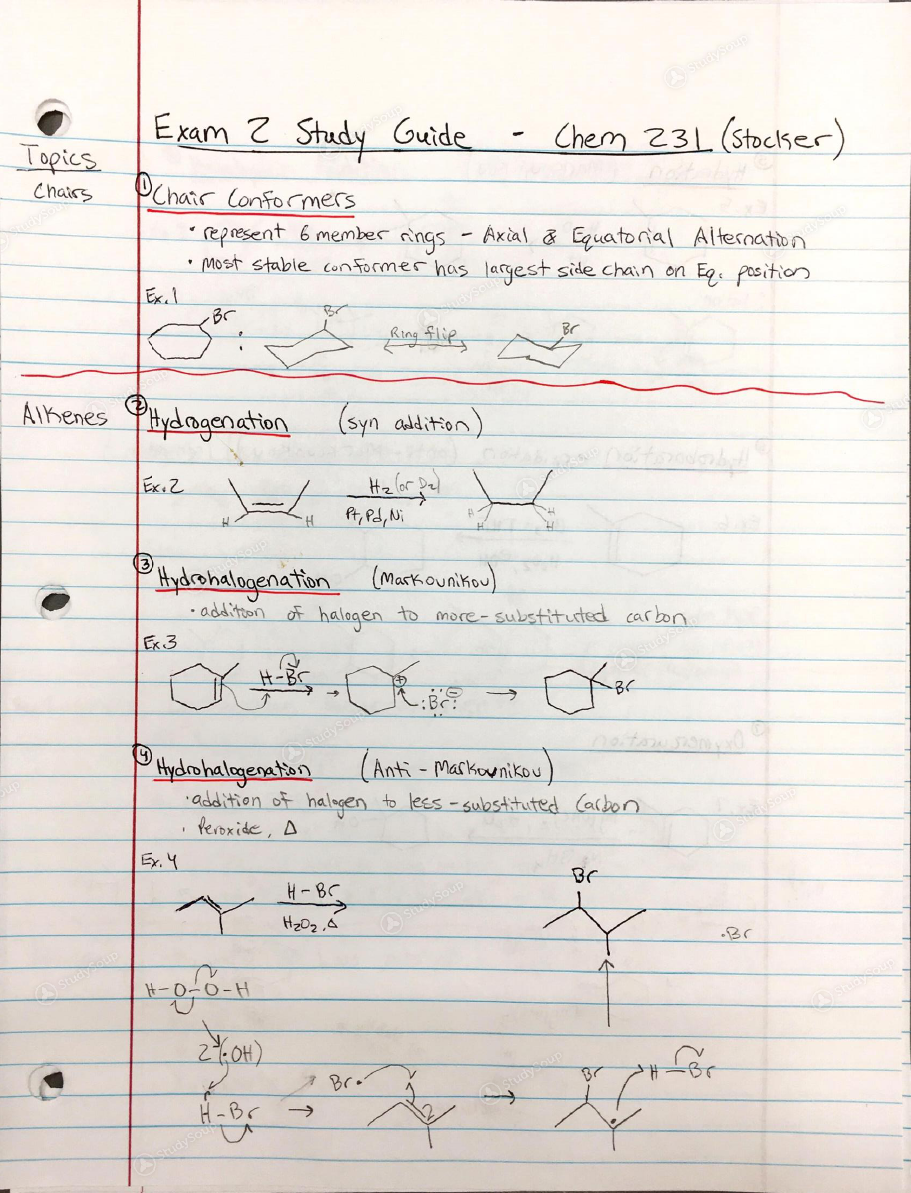 Exam 2 Study Guide - Chem 231 (Stocker)
Topics
Chairs
① Chair Conformers
• represent 6 member rings - Axial & Equatorial Alternation
• Most stable conformer has largest side chain on Eq. position
Ex. 1
Br : Br Ring flip Br
Alkenes
② Hydrogenation (syn addition)
Ex. 2
H H H₂ (or D₂) H H H H
Pt, Pd, Ni
③ Hydrohalogenation (Markovnikov)
• addition of halogen to more-substituted carbon
Ex 3
H-Br → ⊕ :Br: ⊖ → Br
④ Hydrohalogenation (Anti-Markovnikov)
• addition of halogen to less-substituted Carbon
• Peroxide, Δ
Ex. 4
H-Br
H₂O₂, Δ
Br
•Br
H-O-O-H
2 (•OH)
Br•
H-Br →
→ Br
H-Br
StudySoup